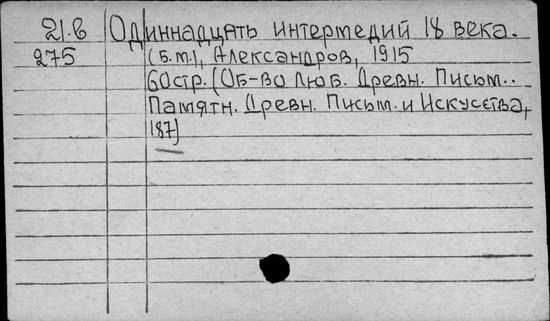 21.6 Одиннадцать интермедий 18 века.
275 (Б.м.), Александров, 1915
60стр. (Об-во Люб. Древн. Письм..
Памятн. Древн. Письм. и Искусства,
187)